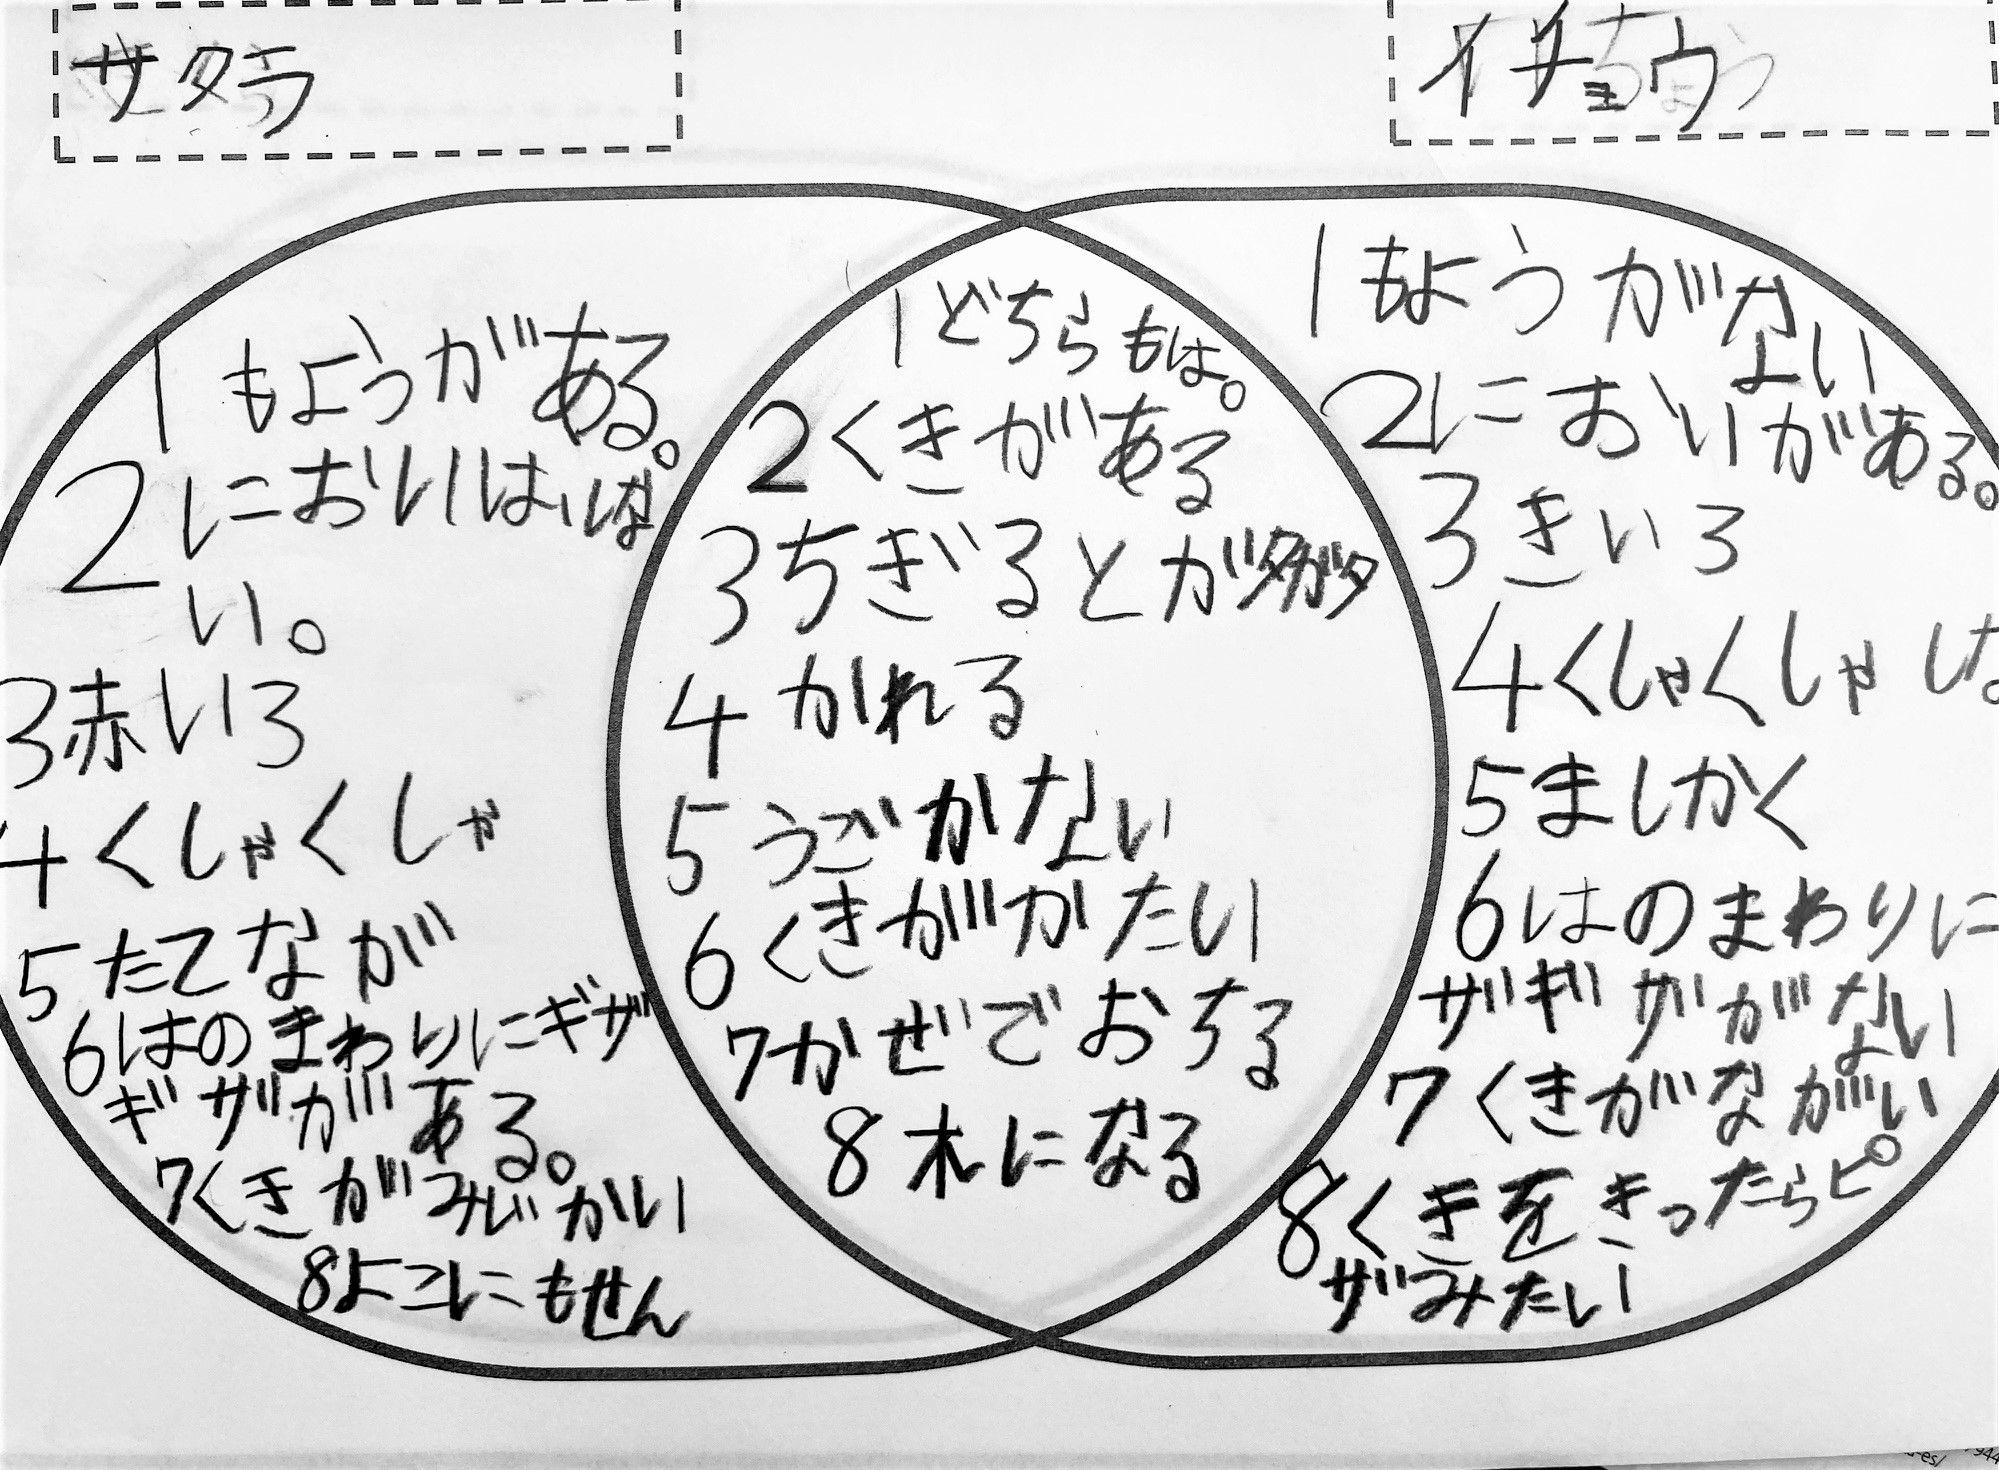 サクラ
イチョウ
1 もようがある。
2 においはな
い。
3 赤いろ
4 くしゃくしゃ
5 たてなが
6 はのまわりにギザ
ギザがある。
7 くきがみじかい
8 よこにもせん
1 どちらもは。
2 くきがある
3 ちぎるとガタガタ
4 かれる
5 うごかない
6 くきがかたい
7 かぜでおちる
8 木になる
1 もようがない
2 においがある。
3 きいろ
4 くしゃくしゃ
5 ましかく
6 はのまわりに
ザギザがない
7 くきがながい
8 くきをきったらピ
ザみたい